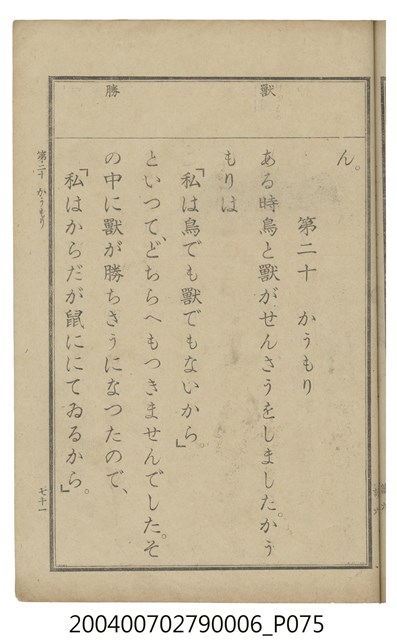 獸
勝
ん。
第二十 かうもり
ある時鳥と獸がせんさうをしました。かう
もりは
「私は鳥でも獸でもないから。」
といつて、どちらへもつきませんでした。そ
の中に獸が勝ちさうになつたので、
「私はからだが鼠ににてゐるから。」
第二十 かうもり
七十一
200400702790006_P075